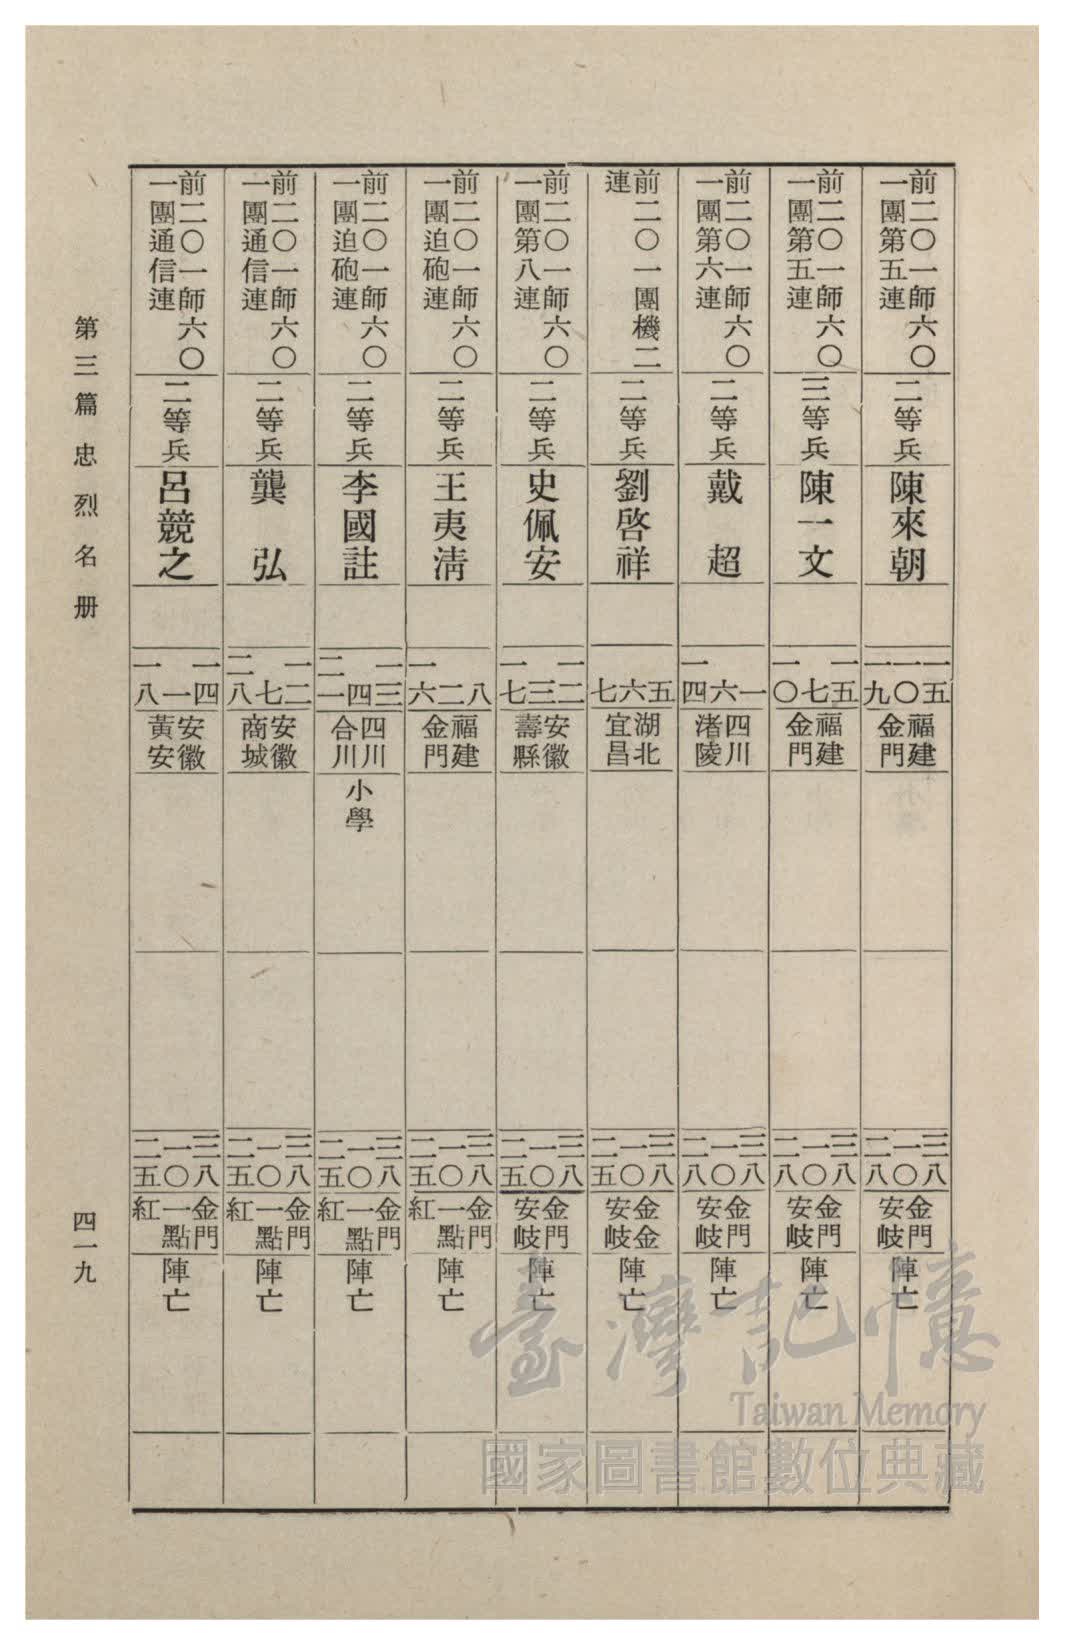 前二〇一師六〇
一團第五連
二等兵
陳來朝
一五
一〇
一九
福建
金門
三八
一〇
二八
金門
安岐
陣亡
前二〇一師六〇
一團第五連
三等兵
陳一文
一五
七
一〇
福建
金門
三八
一〇
二八
金門
安岐
陣亡
前二〇一師六〇
一團第六連
二等兵
戴超
一
六
一四
四川
渚陵
三八
一〇
二八
金門
安岐
陣亡
前二〇一團機二
連
二等兵
劉啓祥
五
六
七
湖北
宜昌
三八
一〇
二五
金金
安岐
陣亡
前二〇一師六〇
一團第八連
二等兵
史佩安
一二
三
一七
安徽
壽縣
三八
一〇
二五
金門
安岐
陣亡
前二〇一師六〇
一團迫砲連
二等兵
王夷淸
八
二
一六
福建
金門
三八
一〇
二五
金門
一點
紅
陣亡
前二〇一師六〇
一團迫砲連
二等兵
李國註
一三
四
二一
四川
合川
小學
三八
一〇
二五
金門
一點
紅
陣亡
前二〇一師六〇
一團通信連
二等兵
龔弘
一二
七
二八
安徽
商城
三八
一〇
二五
金門
一點
紅
陣亡
前二〇一師六〇
一團通信連
二等兵
呂競之
一四
一
一八
安徽
黃安
三八
一〇
二五
金門
一點
紅
陣亡
第三篇 忠烈名册
四一九
臺灣記憶
Taiwan Memory
國家圖書館數位典藏